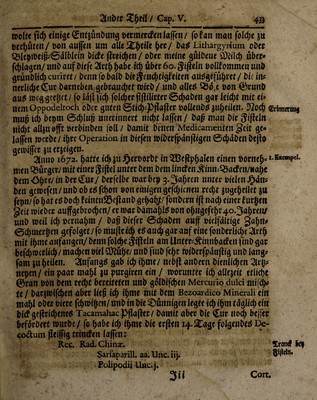 Ander Theil/ Cap. V. 433
wolte sich einige Entzündung vermercken lassen/ so kan man solche zu
verhüten/ von aussen um alle Theile her/ das Lithargyrium oder
Bleyweiß-Sälblein dick streichen/ oder meine güldene Milch über-
schlagen/ und auf diese Arth habe ich über 60 Fisteln vollkommen und
gründlich curiret/ denn so bald die Feuchtigkeiten ausgeführet/ die in-
nerliche Cur darneben gebrauchet wird/ und alles Böse von Grund
aus weg geetzet/ so läst sich solcher fistilirter Schaden gar leicht mit ei-
nem Oppodeltoch oder guten Stich-Pflaster vollends zuheilen. Noch
muß ich beym Schluß unerinnert nicht lassen/ daß man die Fisteln
nicht allzu offt verbinden soll/ damit denen Medicamenten Zeit ge-
lassen werde/ ihre Operation in diesen widerspänstigen Schäden desto
gewisser zu erzeigen.
Erinnerung
Anno 1672. hatte ich zu Hervorde in Westphalen einen vorneh-
men Bürger/ mit einer Fistel unter dem dem lincken Kinn-Backen/ nahe
dem Ohre/ in der Cur/ derselbe war bey 3. Jahren unter vielen Hän-
den gewesen/ und ob es schon von einigen geschienen recht zugeheilet zu
seyn/ so hat es doch keinen Bestand gehabt/ sondern ist nach einer kurtzen
Zeit wieder auffgebrochen/ er war dahmahls von ohngefehr 40. Jahren/
und weil ich vernahm/ daß dieser Schaden auff vielfältige Zahn-
Schmertzen gefolget/ so muste ich es auch gar auf eine sonderliche Arth
mit ihme anfangen/ denn solche Fisteln am Unter-Kinnbacken sind gar
beschwerlich/ machen viel Mühe/ und sind sehr widerspänstig und lang-
sam zu heilen. Anfangs gab ich ihme/ nebst andern dienlichen Artz-
neyen/ ein paar mahl zu purgiren ein/ worunter ich allezeit etliche
Gran von dem recht bereiteten und göldischen Mercurio dulci misch-
te/ darzwischen aber ließ ich ihme mit dem Bezoardico Minerali ein
mahl oder viere schwitzen/ und in die Dünnigen legte ich ihm täglich ein
dick gestrichenes Tacamahac Pflaster/ damit aber die Cur noch besser
befördert wurde/ so habe ich ihme die ersten 14. Tage folgendes De-
coctum fleissig trincken lassen:
1. Exempel.
Rec. Rad. Chinæ.
Sarsaparill. aa. Unc. iij.
Polipodii Unc. j.
Tranck bey
Fisteln.
Jii Cort.